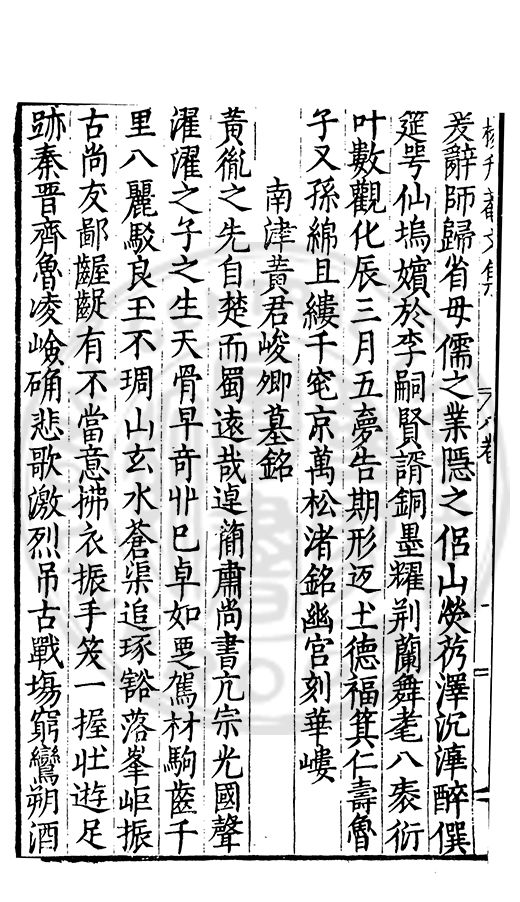 爰辭師歸省母儒之業隱之侶山熒礿澤沉渖醉僎
筵咢仙塢嬪於李嗣賢諝銅墨耀荆蘭舞耄八袠衍
叶數觀化辰三月五夢告期形返土德福箕仁壽魯
子又孫綿且縷千窀京萬松渚銘幽宮刻華嶁
南津黃君峻卿墓銘
黃胤之先自楚而蜀遠哉逴蕳肅尚書亢宗光國聲
濯濯之子之生天骨早奇丱巳卓如駕材駒齒千
里八麗駁良玉不琱山玄水蒼渠追琢豁落峯岠振
古尚友鄙齷齪有不當意拂衣振手笅一握壯遊足
跡秦晉齊魯凌嶮确悲歌激烈吊古戰塲窮鸞朔酒